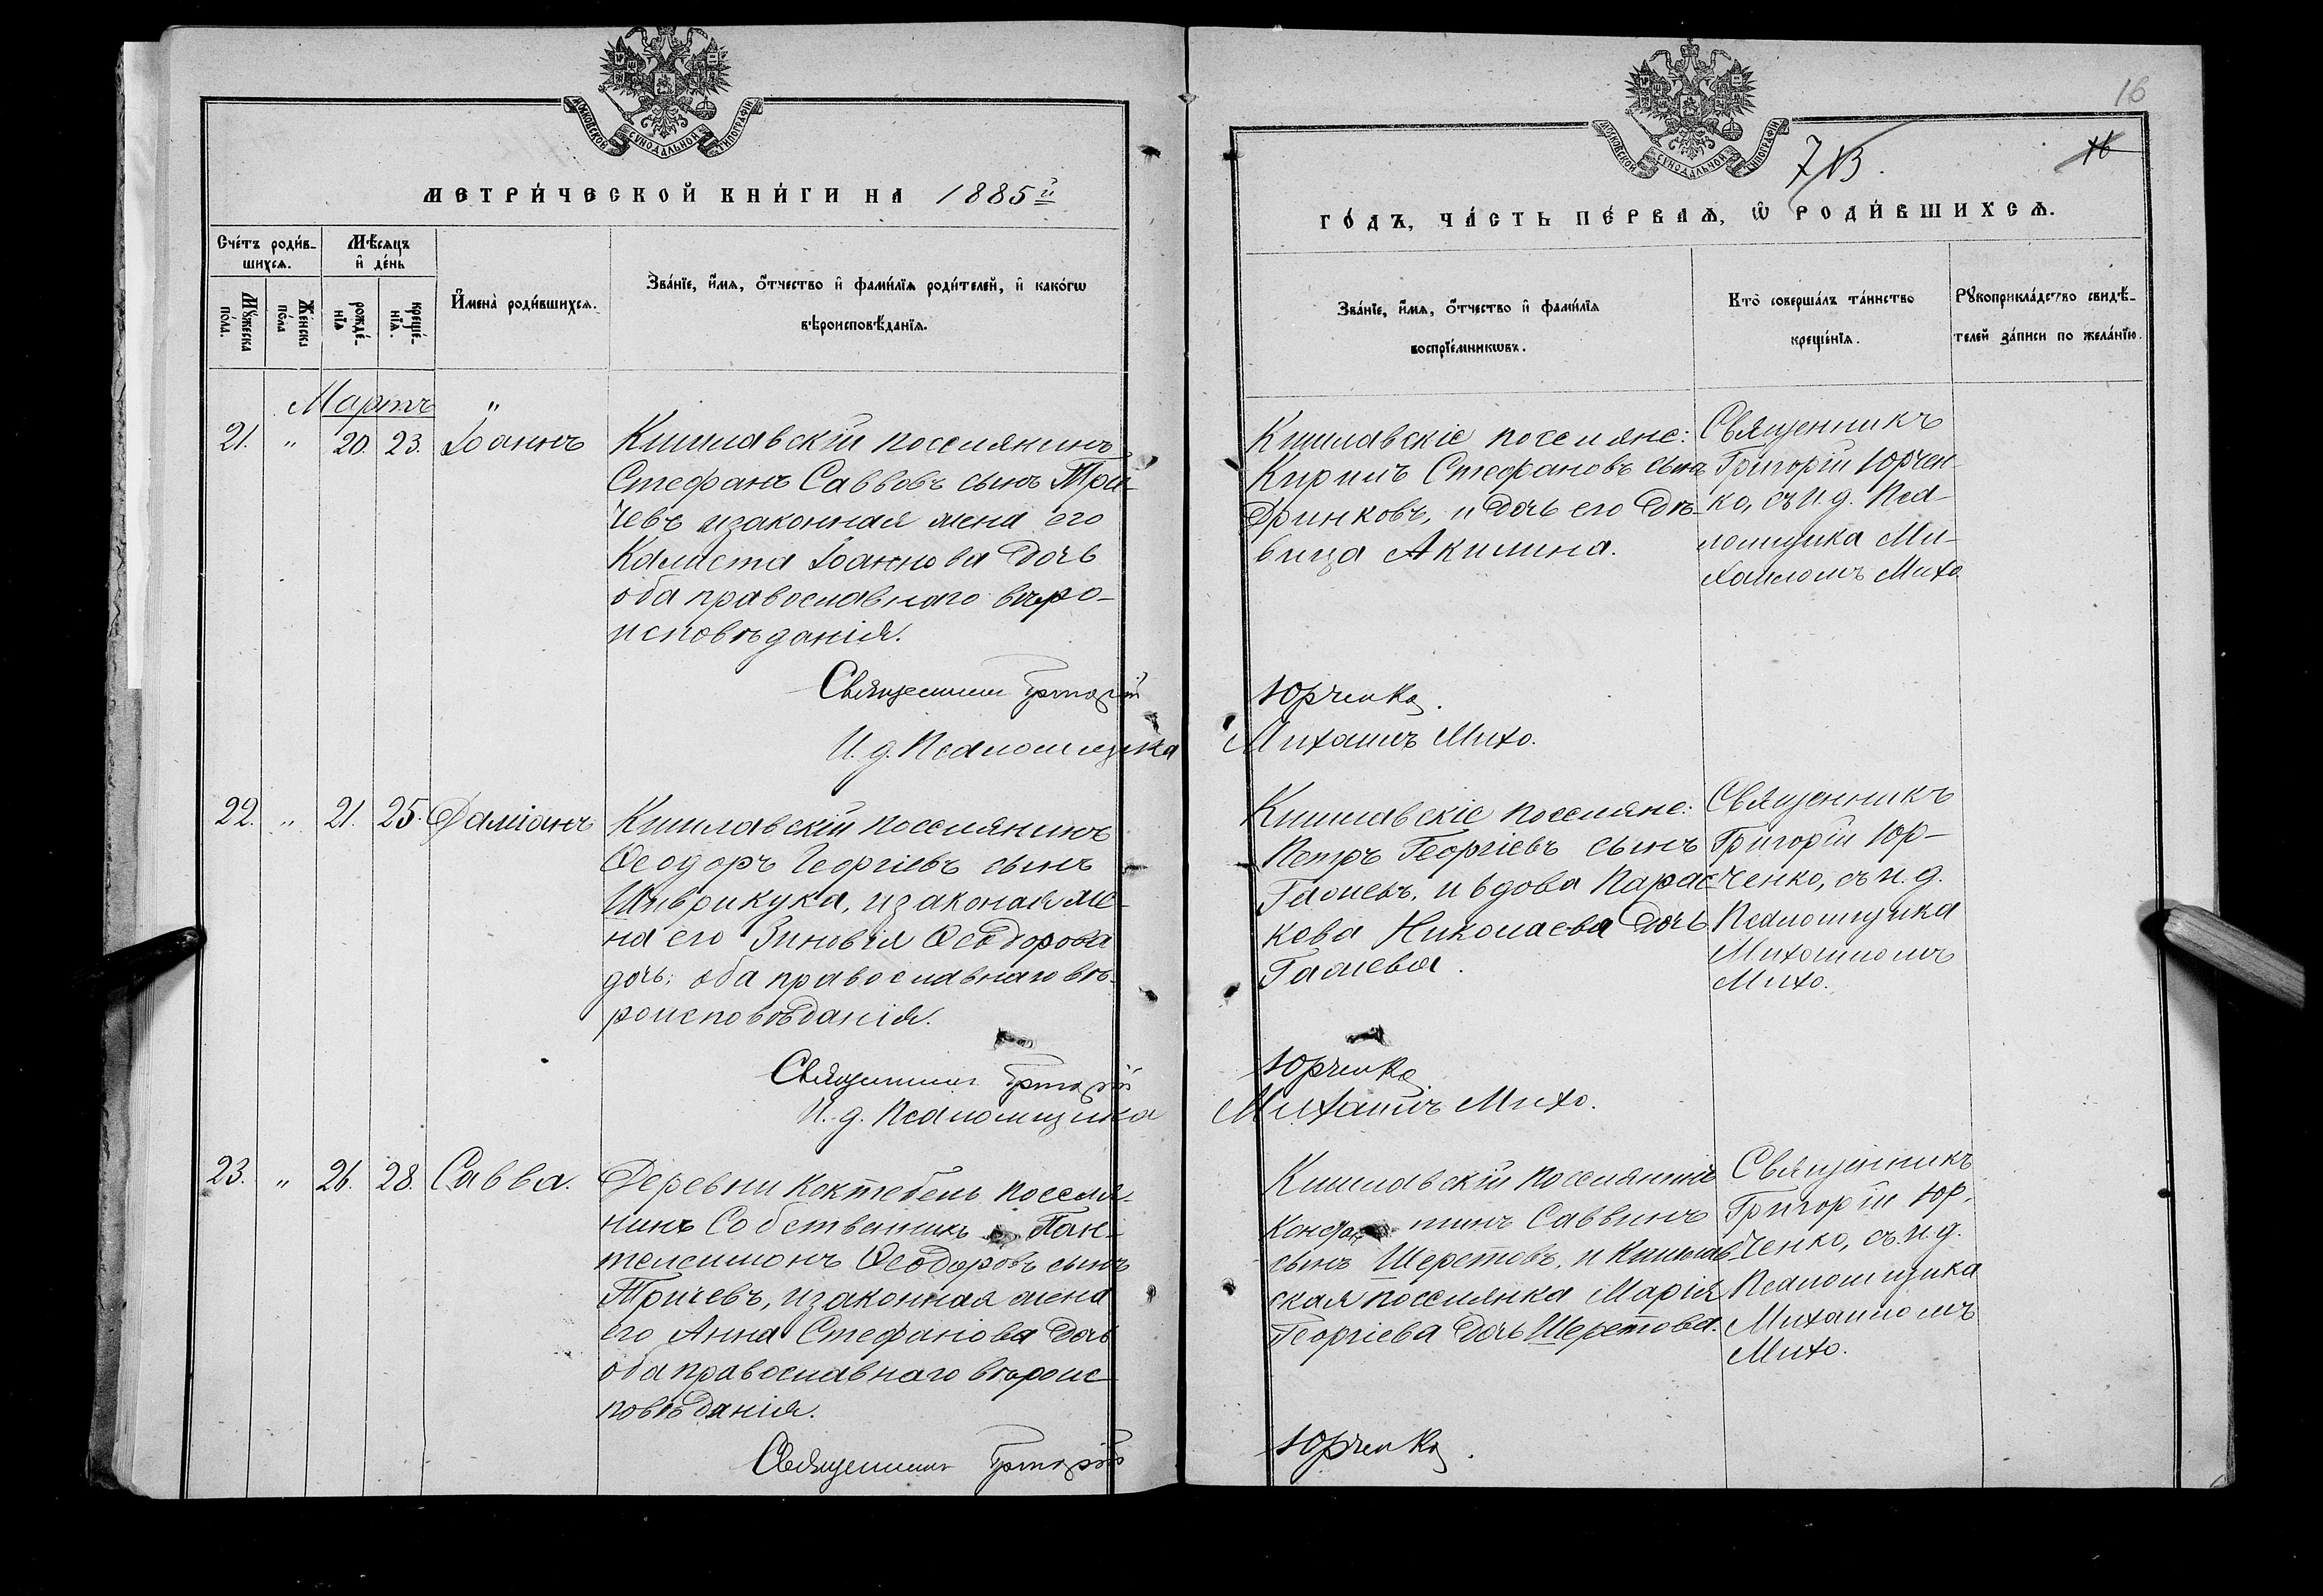 МОСКОВСКОЙ СѴНОДАЛЬНОЙ ТИПОГРАФІИ
МЕТРИ́ЧЕСКОЙ КНИ́ГИ НА 1885й
Сче́тъ роди́в-
шихсѧ.
Мѣ́сѧцъ
и҆ де́нь
И҆мена̀ роди́вшихсѧ.
Зва́нїе, и҆́мѧ, ѻ҆́тчество и҆ фами́лїѧ роди́телей, и҆ како́гѡ
вѣроисповѣ́данїѧ.
Мꙋ́жеска
по́ла.
Же́нска
по́ла
рожде́-
нїѧ
креще́-
нїѧ.
Мартъ "
21. " 20. 23. Іоаннъ
Кишлавскій поселянинъ
Стефанъ Саввовъ сынъ Три-
чевъ изаконная жена его
Калиста Іоаннова дочь
оба православнаго веро-
исповѣданія.
Священникъ Григорій
И. д. Псаломщика
22. " 21. 25. Даміанъ
Кишлавскій поселянинъ
Ѳеодоръ Георгіевъ сынъ
изаконая же-
на его Зиновія Ѳеодорова
дочь; оба православнаго вѣ-
роисповѣданія.
Священникъ Григорій
И. д. Псаломщика
23. " 26. 28. Савва.
Деревни Коктебель поселя-
нинъ Собственникъ Пан-
телеимонъ Ѳеодоровъ сынъ
Тричевъ, изаконная жена
его Анна Стефанова дочь
оба православнаго вѣроис-
повѣданія.
Священникъ Григорій
16
МОСКОВСКОЙ СѴНОДАЛЬНОЙ ТИПОГРАФІИ
16
ГО́ДЪ, ЧА́СТЬ ПЕ́РВАѦ, Ѡ҆ РОДИ́ВШИХСѦ.
Зва́нїе, и҆́мѧ, ѻ҆́тчество и҆ фами́лїѧ
воспрїе́мникѡвъ.
Кто̀ соверша́лъ та́инство
креще́нїѧ.
Рꙋкоприкла́дство свидѣ́-
телей за́писи по жела́нїю.
Кишлавскіе поселяне:
Кирилъ Стефановъ сынъ
Дринковъ, и дочь его дѣ-
вица Акилина.
Священникъ
Григорій Юрчен-
ко, съ И. д. Пса-
ломщика Ми-
хаиломъ Михо.
Юрченко.
Михаилъ Михо.
Кишлавскіе поселяне:
Петръ Георгіевъ сынъ
и вдова Парас-
кова Николаева дочь
Священникъ
Григорій Юр-
ченко, съ и. д.
Псаломщика
Михаиломъ
Михо.
Юрченко
Михаилъ Михо.
Кишлавскій поселянинъ
Саввинъ
сынъ Шеретовъ, и Кишлав-
ская поселянка Марія
Георгіева дочь Шеретова.
Священникъ
Григорій Юр-
ченко, съ и. д.
Псаломщика
Михаиломъ
Михо.
Юрченко.